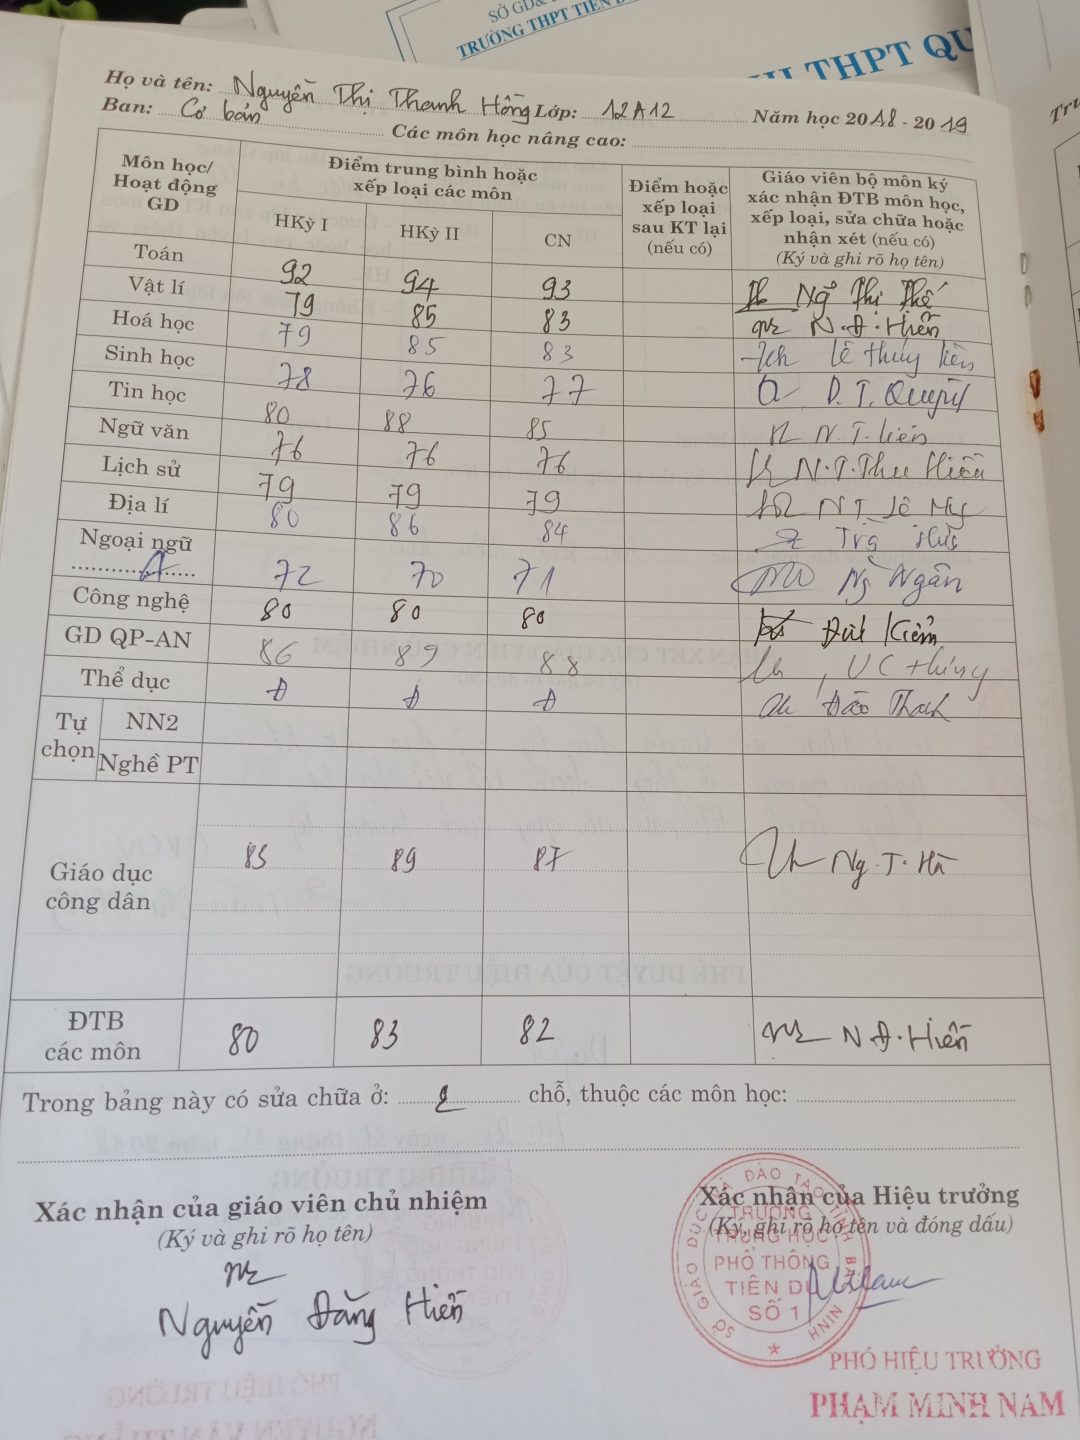 SỞ GD&
TRƯỜNG THPT TIÊN D
THPT QU
Họ và tên: Nguyễn Thị Thanh Hồng Lớp: 12A12 Năm học 2018 - 2019
Ban: Cơ bản Các môn học nâng cao:
Môn học/ Hoạt động GD
Điểm trung bình hoặc xếp loại các môn
HKỳ I HKỳ II CN
Điểm hoặc xếp loại sau KT lại (nếu có)
Giáo viên bộ môn ký xác nhận ĐTB môn học, xếp loại, sửa chữa hoặc nhận xét (nếu có) (Ký và ghi rõ họ tên)
Toán 92 94 93 Ng Thị Thế
Vật lí 79 85 83 N.Đ.Hiến
Hoá học 79 85 83 Lê Thúy
Sinh học 78 76 77 D.T.Quỳnh
Tin học 80 88 85 N.T.Liên
Ngữ văn 76 76 76 N.T.Thu Hiền
Lịch sử 79 79 79 N T Lê
Địa lí 80 86 84 Trà
Ngoại ngữ A 72 70 71 Ng Ngân
Công nghệ 80 80 80 Kiểm
GD QP-AN 86 89 88
Thể dục Đ Đ Đ Đào Thanh
Tự chọn NN2
Nghề PT
Giáo dục công dân 85 89 87 Ng.T.Hà
ĐTB các môn 80 83 82 N Đ.Hiến
Trong bảng này có sửa chữa ở: chỗ, thuộc các môn học:
Xác nhận của giáo viên chủ nhiệm
(Ký và ghi rõ họ tên)
Nguyễn Đăng Hiến
Xác nhận của Hiệu trưởng
(Ký, ghi rõ họ tên và đóng dấu)
SỞ GIÁO DỤC VÀ ĐÀO TẠO TỈNH BẮC NINH
TRƯỜNG
TRUNG HỌC
PHỔ THÔNG
TIÊN DU
SỐ 1
PHÓ HIỆU TRƯỞNG
PHẠM MINH NAM